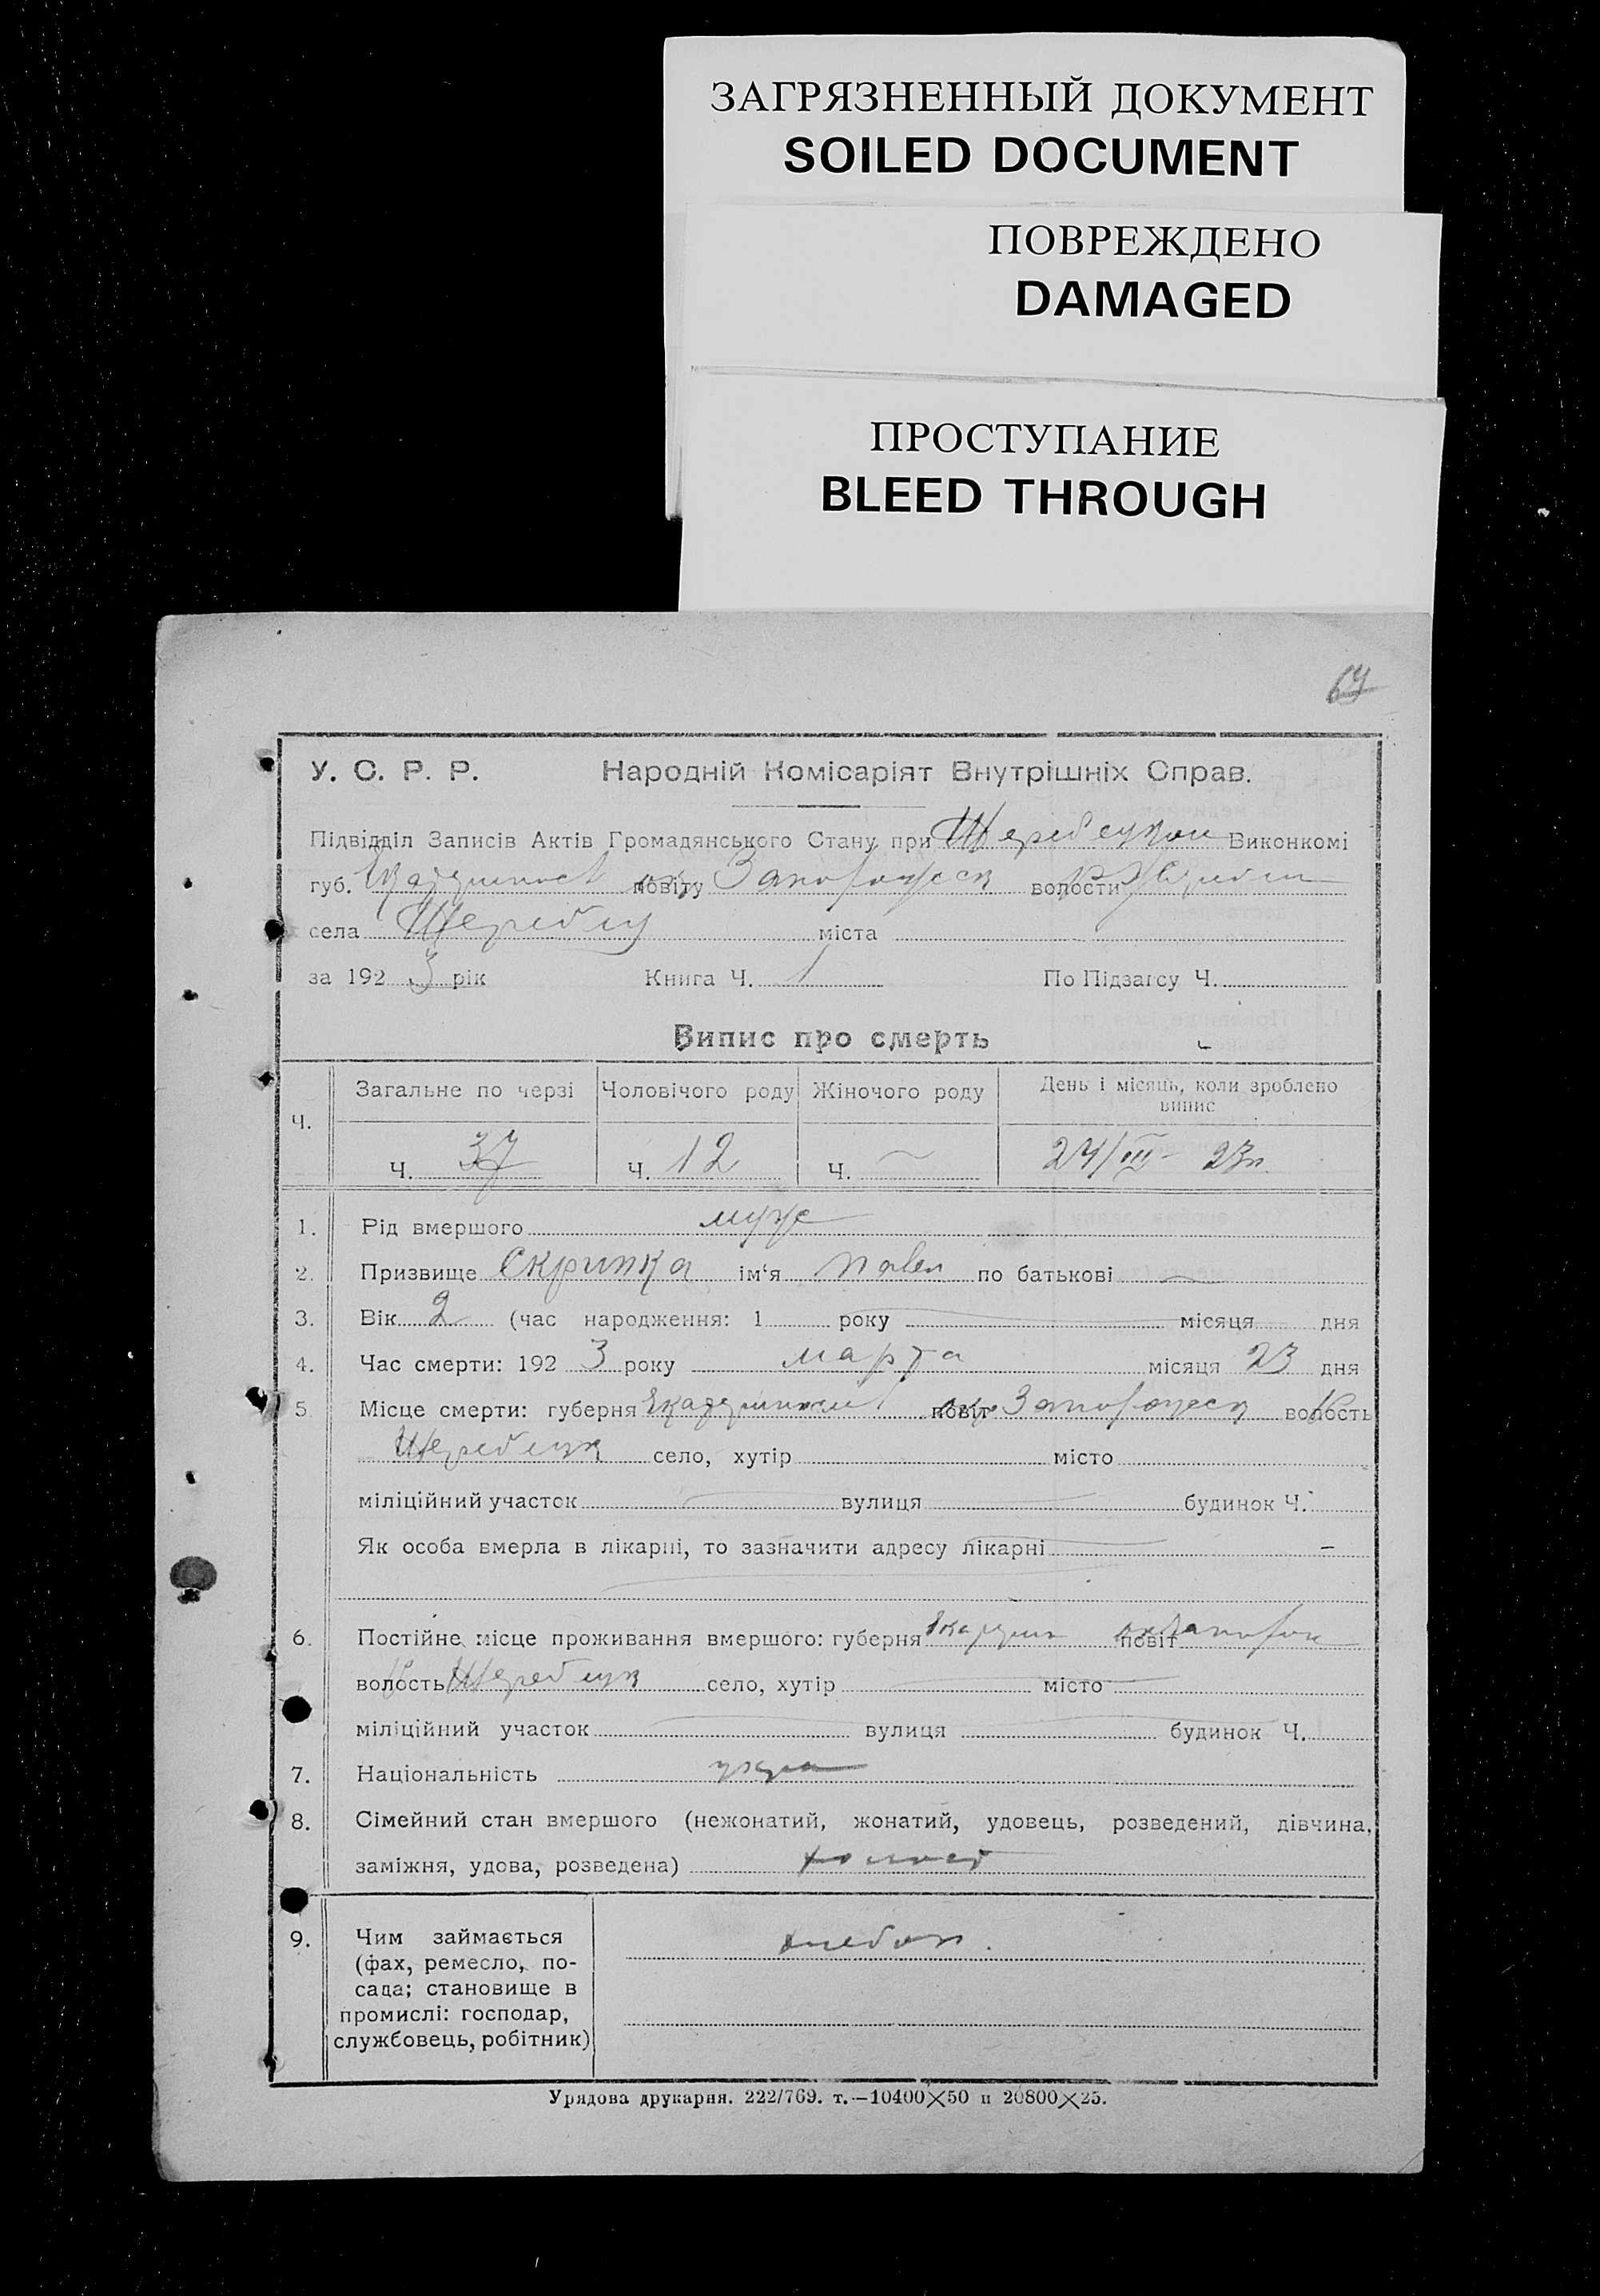 ЗАГРЯЗНЕННЫЙ ДОКУМЕНТ
SOILED DOCUMENT
ПОВРЕЖДЕНО
DAMAGED
ПРОСТУПАНИЕ
BLEED THROUGH
У. С. Р. Р. Народній Комісаріят Внутрішніх Справ.
Підвідділ Записів Актів Громадянського Стану при Виконкомі
губ. повіту волости
села міста
за 192 3 рік Книга Ч. 1 По Підзагсу Ч.
Випис про смерть
Ч. Загальне по черзі Чоловічого роду Жіночого роду День і місяць, коли зроблено випис
Ч. 37 Ч. 12 Ч. — 24/III - 23г.
1. Рід вмершого муж
2. Призвище Скрипка ім‘я Павел по батькові —
3. Вік 2 (час народження: 1 року — місяця дня
4. Час смерти: 192 3 року марта місяця 23 дня
5 Місце смерти: губерня повіт волость
село, хутір місто
міліційний участок — вулиця — будинок Ч.
Як особа вмерла в лікарні, то зазначити адресу лікарні —
6. Постійне місце проживання вмершого: губерня повіт
волость село, хутір — місто —
міліційний участок — вулиця — будинок Ч.
7. Національність укра
8. Сімейний стан вмершого (нежонатий, жонатий, удовець, розведений, дівчина,
заміжня, удова, розведена) холост
9. Чим займається хлебоп.
(фах, ремесло, по-
сада; становище в
промислі: господар,
службовець, робітник)
Урядова друкарня. 222/769. т.—10400×50 и 20800×25.